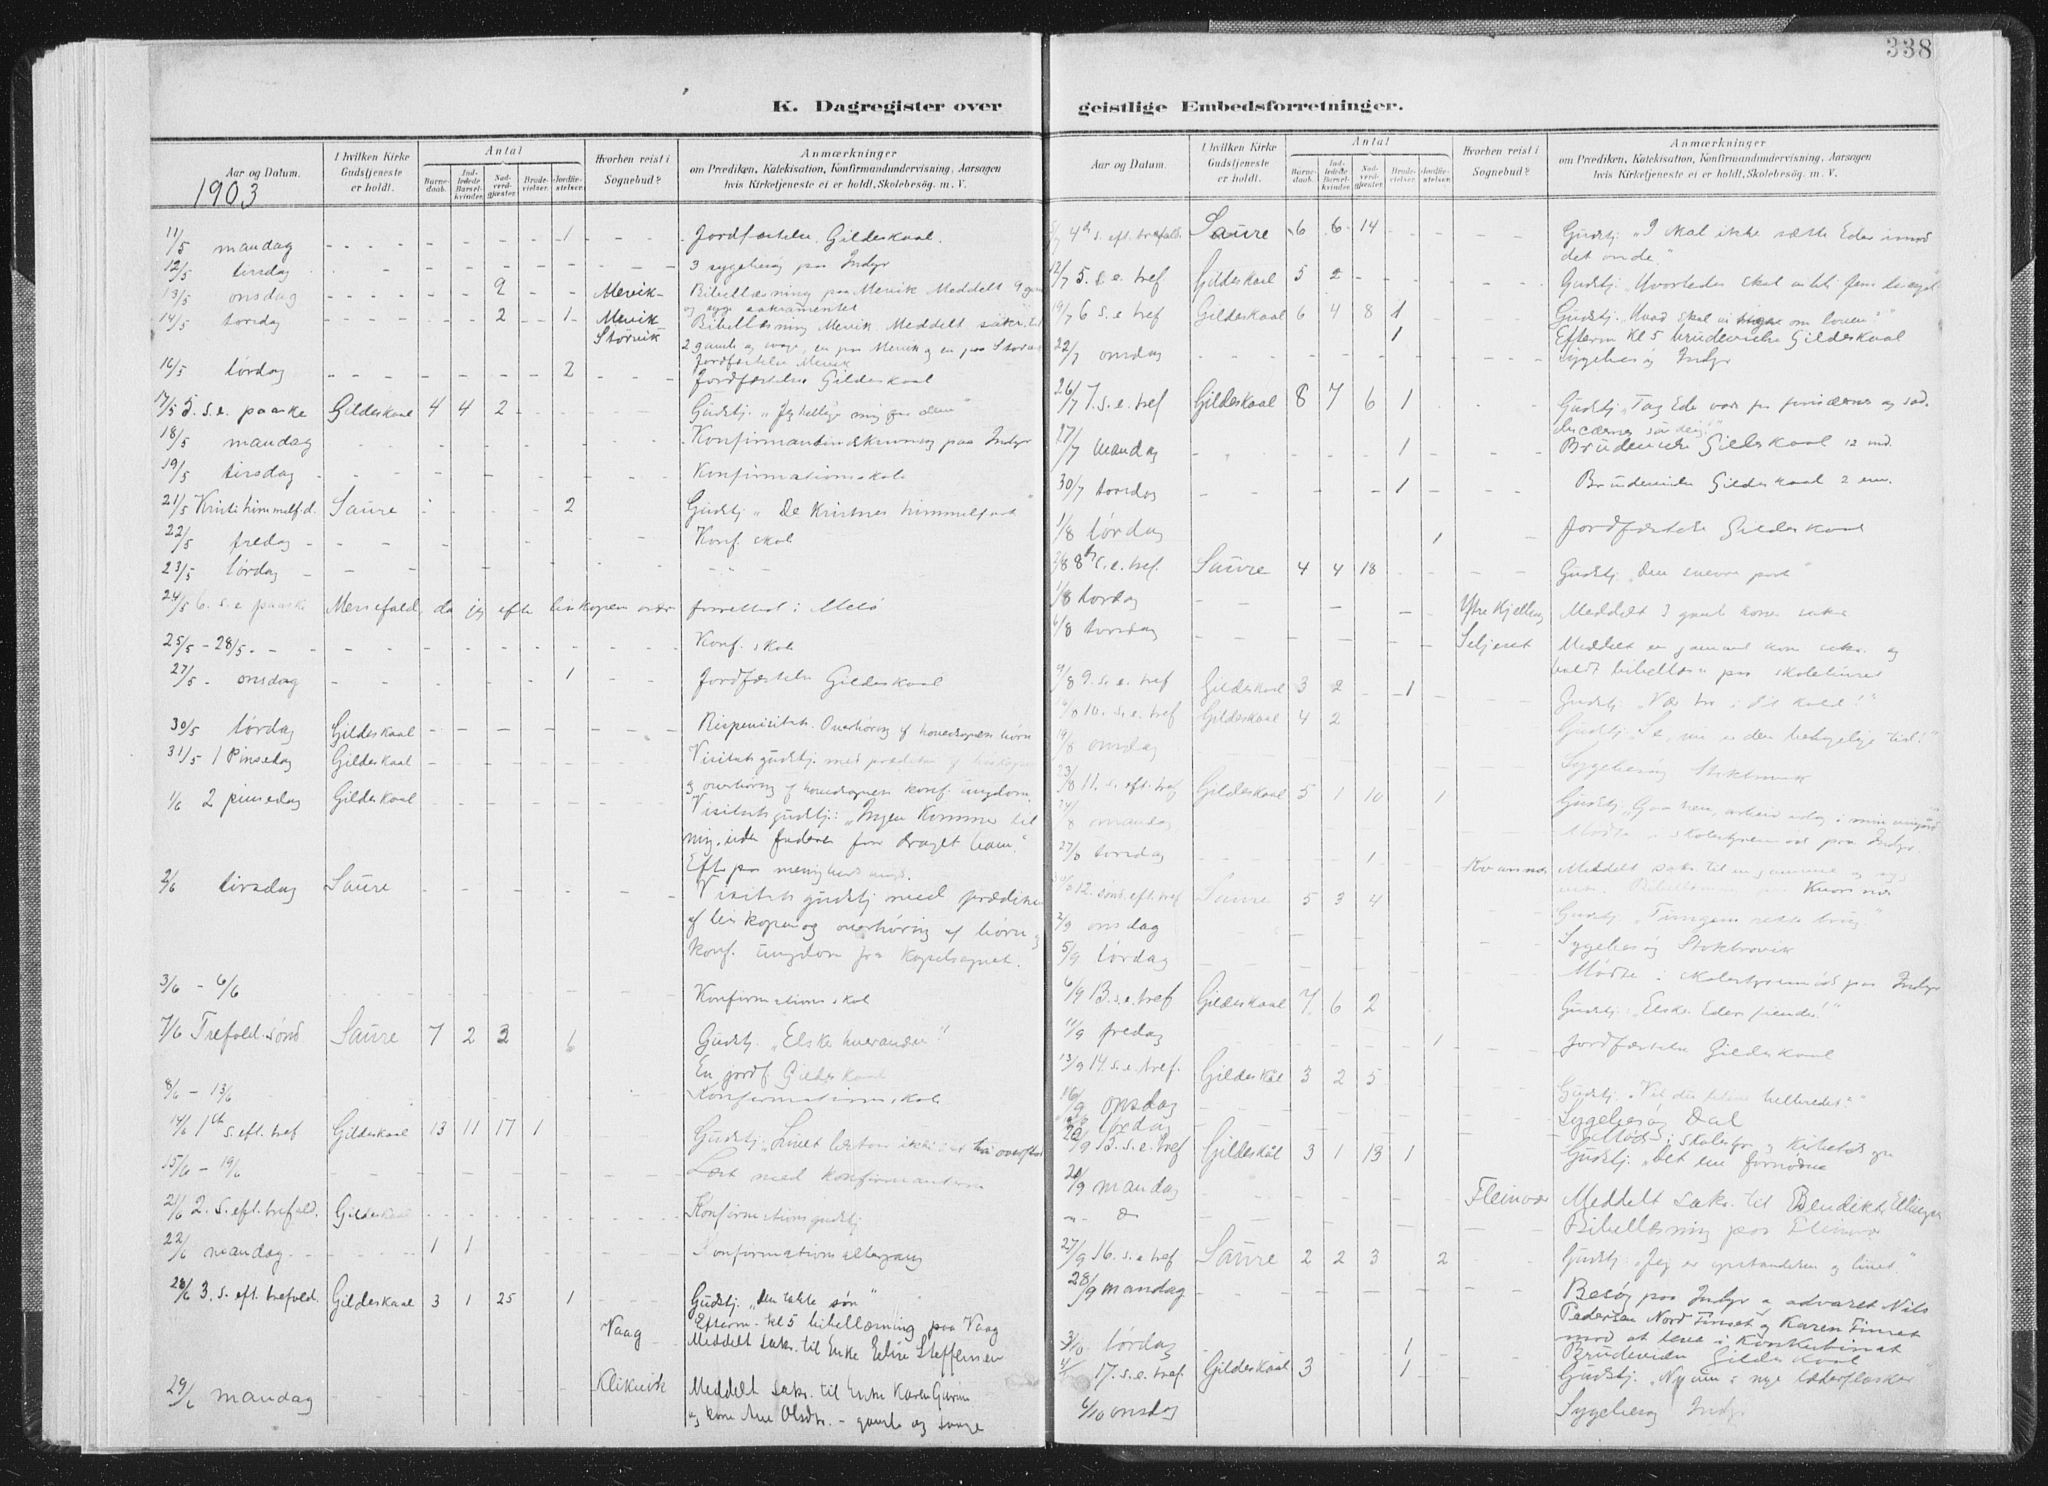 338
K. Dagregister over
Aar og Datum.
I hvilken Kirke Gudstjeneste er holdt.
Antal
Barnedaab.
Indledede Barselkvinder.
Nadverdgjester.
Brudevielser.
Jordfæstelser.
Hvorhen reist i Sognebud?
Anmærkninger
om Prædiken, Katekisation, Konfirmandundervisning, Aarsagen
hvis Kirketjeneste ei er holdt, Skolebesøg. m. V.
1903
11/5 mandag 1 Jordfæstelse Gildeskaal.
12/5 tirsdag 3 sygebesøg paa Indyr
13/5 onsdag 9 Mevik Bibellæsning paa Mevik Meddelt 9
og syge sakramentet
14/5 torsdag 2 1 Mevik Bibellæsning Mevik. Meddelt sakr. til
Størvik 2 gamle og svage, en paa Mevik og en paa
Jordfæstelse Mevik
16/5 lørdag 2 Jordfæstelse Gildeskaal
17/5 5. s. e. paaske Gildeskaal 4 4 2 Gudstj. „Jeg hellige mig for dem"
18/5 mandag Konfirmantindskrivning paa Indyr
19/5 tirsdag Konfirmationsskole
21/5 Kristi himmelf.d. Saure 2 Gudstj. „De Kristnes himmelfart"
22/5 fredag Konf. skole
23/5 lørdag " "
24/5 6. s. e. paaske Messefald, da jeg efter biskopens ordre forrettet i Melø
25/5 - 28/5 Konf. skole
27/5 onsdag 1 Jordfæstelse Gildeskaal
30/5 lørdag Gildeskaal Bispevisitats. Overhøring af hovedsognets børn
31/5 1 Pinsedag Gildeskaal Visitatsgudstj. med prædiken af biskopen
og overhøring af hovedsognets konf. ungdom.
1/6 2 pinsedag Gildeskaal Visitatsgudstj.: „Ingen Kommer til
mig, uden faderen faar draget ham."
Efterpaa menighedsmøde.
2/6 tirsdag Saure Visitatsgudstj med prædiken
af biskopen og overhøring af børn og
konf. ungdom fra Kapelsognet.
3/6 - 6/6 Konfirmationsskole
7/6 Trefold. sønd Saure 7 2 3 6 Gudstj. „Elsker hverandre!"
En jordf. Gildeskaal
8/6 - 13/6 Konfirmationsskole
14/6 1ste s. eft. tref Gildeskaal 13 11 17 1 Gudstj. „Livet
15/6 - 19/6 Læst med konfirmanterne
21/6 2. s. eft. trefold. Gildeskaal Konfirmationsgudstj.
22/6 mandag 1 1 Konfirmationsaltergang
28/6 3. s. eft. trefold. Gildeskaal 3 1 25 1 Gudstj. „Den tabte søn"
Efterm. kl 5 bibellæsning paa Vaag
Vaag Meddelt sakr. til Enke Eline Steffensen
29/6 mandag Klikvik Meddelt sakr. til Enke Karen
og kone Ane Olsdtr. - gamle og svage
geistlige Embedsforretninger.
Aar og Datum.
I hvilken Kirke Gudstjeneste er holdt.
Antal
Barnedaab.
Indledede Barselkvinder.
Nadverdgjester.
Brudevielser.
Jordfæstelser.
Hvorhen reist i Sognebud?
Anmærkninger
om Prædiken, Katekisation, Konfirmandundervisning, Aarsagen
hvis Kirketjeneste ei er holdt, Skolebesøg. m. V.
5/7 4de s. eft. trefold. Saure 6 6 14 Gudstj. „I skal ikke sætte Eder imod
det onde."
12/7 5. s. e. tref. Gildeskaal 5 2 Gudstj. „Hvorledes skal
19/7 6 s. e tref Gildeskaal 6 4 8 1 Gudstj. „Hvad skal vi om loven?"
1 Efterm Kl 5 brudevielse Gildeskaal
22/7 onsdag Sygebesøg Indyr
26/7 7. s. e. tref Gildeskaal 8 7 6 1 Gudstj. „Tag Eder vare for farisæernes og sad-
ducæernes surdeig!"
27/7 mandag 1 Brudevielse Gildeskaal 12 md.
30/7 torsdag 1 Brudevielse Gildeskaal 2 em.
1/8 lørdag 1 Jordfæstelse Gildeskaal
2/8 8de s. e. tref. Saure 4 4 18 Gudstj. „Den snevre port"
torsdag Ytre Kjelling Meddelt 3 gamle koner sakr.
6/8 torsdag Seljeset Meddelt en gammel kone sakr. og
holdt bibellæsn. paa skolehuset
9/8 9. s. e. tref Gildeskaal 3 2 1 Gudstj. „Vær tro i dit kald!"
10. s. e. tref Gildeskaal 4 2 Gudstj. „Se, nu er den behagelige tid!"
19/8 onsdag Sygebesøg
23/8 11. s. eft. tref Gildeskaal 5 1 10 1 Gudstj. „Gaa hen, arbeid idag i min vingaard"
24/8 mandag Møde i skolestyremøde paa Indyr.
27/8 torsdag 1 Kvannes Meddelt sakr. til en gammel og syg
Bibellæsning
12. sønd. eft. tref Saure 5 3 4 Gudstj. „Tungens rette brug"
2/9 onsdag Sygebesøg Stoktvik
5/9 lørdag Mødte i skolestyremøde paa Indyr
6/9 13. s. e. tref Gildeskaal 7 6 2 Gudstj. „Elsk Eders fiender!"
11/9 fredag 1 Jordfæstelse Gildeskaal
13/9 14. s. e. tref. Gildeskål 3 2 5 Gudstj. „Vil du blive helbredet?"
16/9 onsdag Sygebesøg Dal
lørdag Møde i skolestyre og
20/9 15. s. e. tref Gildeskål 3 1 13 1 Gudstj. „Det ene fornødne
21/9 mandag Fleinvær Meddelt sakr. til Bendikt
Bibellæsning paa Fleinvær
27/9 16. s. e tref Saure 2 2 3 2 Gudstj. „Jeg er opstandelsen og livet"
28/9 mandag Besøg paa Indyr og advaret Nils
Pedersen Nord Finset og Karen Finset
mod at leve i Konkubinat
3/10 lørdag 1 Brudevielse Gildeskaal
17. s. e. tref. Gildeskaal 3 1 Gudstj. „Ny vin i nye læderflasker
6/10 onsdag Sygebesøg Indyr